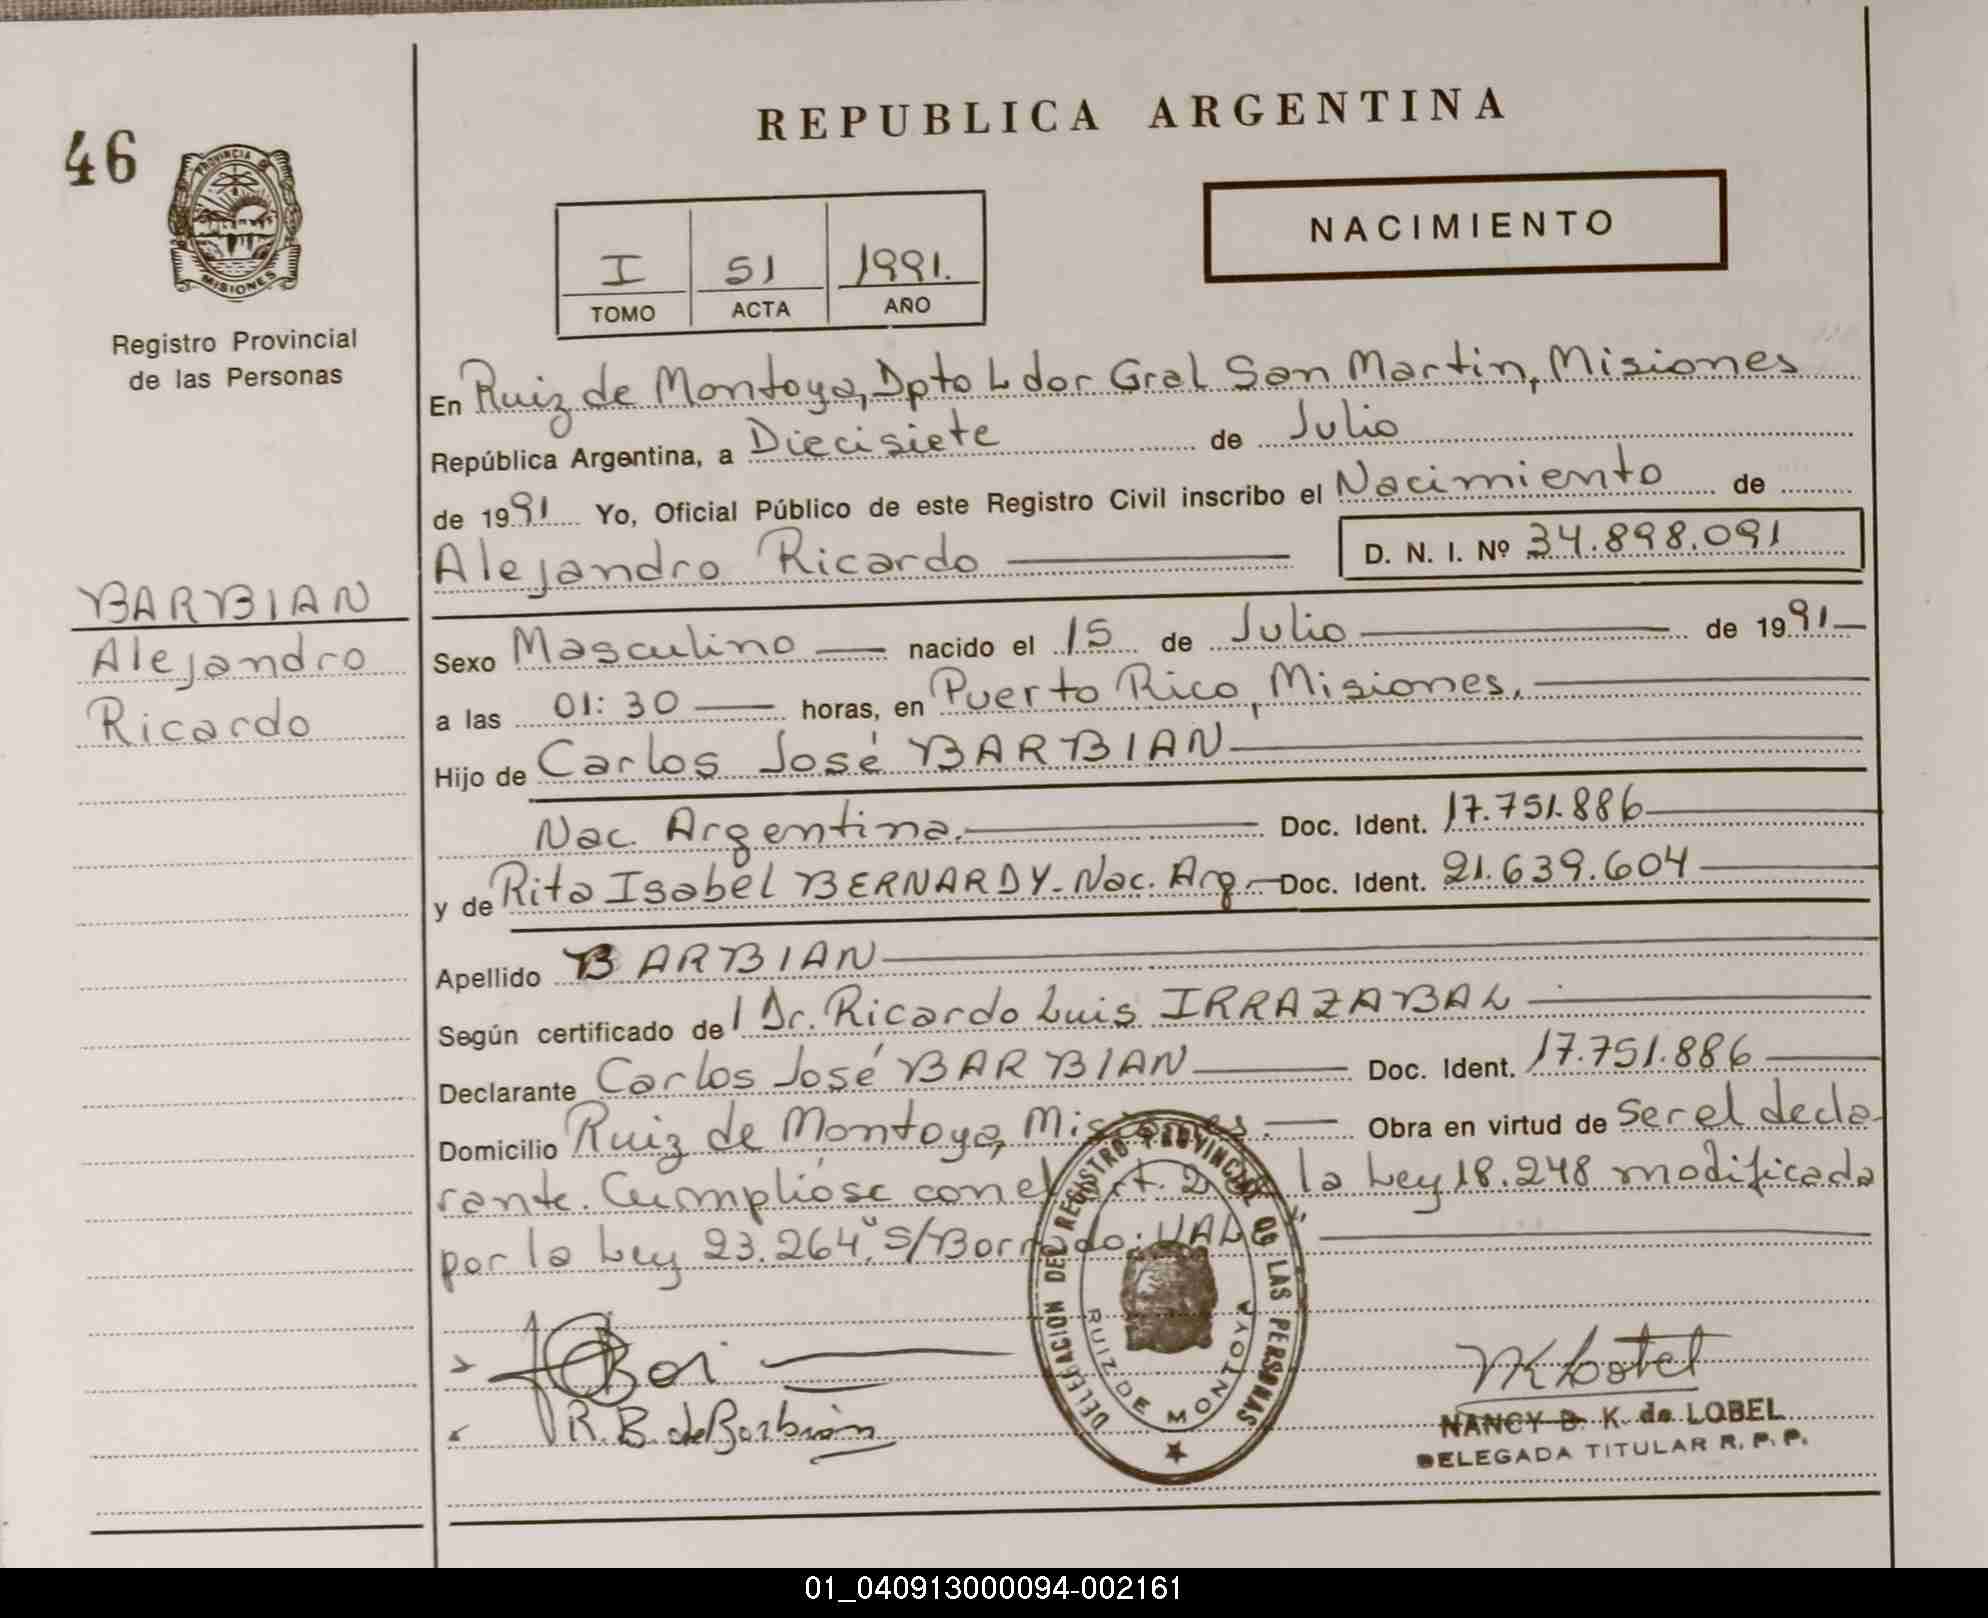 REPUBLICA ARGENTINA
46
PROVINCIA DE
MISIONES
Registro Provincial
de las Personas
NACIMIENTO
I 51 1991.
TOMO ACTA AÑO
En Ruiz de Montoya, Dpto L dor Gral San Martin, Misiones
República Argentina, a Diecisiete de Julio
de 1991 Yo, Oficial Público de este Registro Civil inscribo el Nacimiento de
Alejandro Ricardo D. N. I. Nº 34.898.091
BARBIAN
Alejandro
Ricardo
Sexo Masculino nacido el 15 de Julio de 1991
a las 01:30 horas, en Puerto Rico, Misiones.
Hijo de Carlos José BARBIAN
Nac. Argentina. Doc. Ident. 17.751.886
y de Rita Isabel BERNARDY. Nac. Arg. Doc. Ident. 21.639.604
Apellido BARBIAN
Según certificado del Dr. Ricardo Luis IRRAZABAL
Declarante Carlos José BARBIAN Doc. Ident. 17.751.886
Domicilio Ruiz de Montoya, Misiones. Obra en virtud de ser el decla-
rante. Cumplióse con el la Ley 18.248 modificada
por la Ley 23.264." S/Borrado: VALE
DELEGACION DEL REGISTRO PROVINCIAL DE LAS PERSONAS
RUIZ DE MONTOYA
R. B. de Barbián
NANCY B. K. de LOBEL
DELEGADA TITULAR R. P. P.
01_040913000094-002161